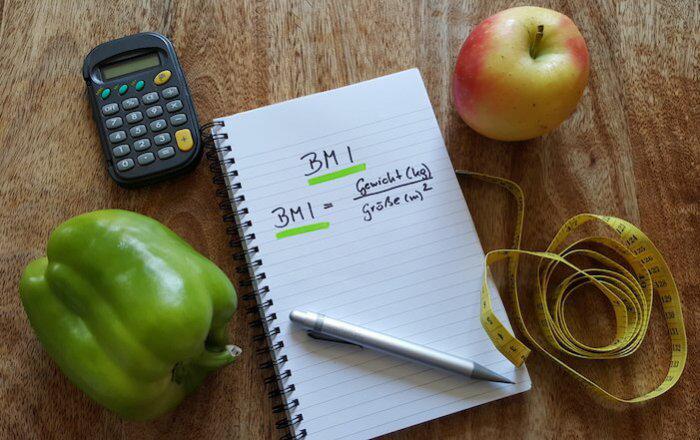 BMI
BMI = Gewicht (kg)
größe (m)²